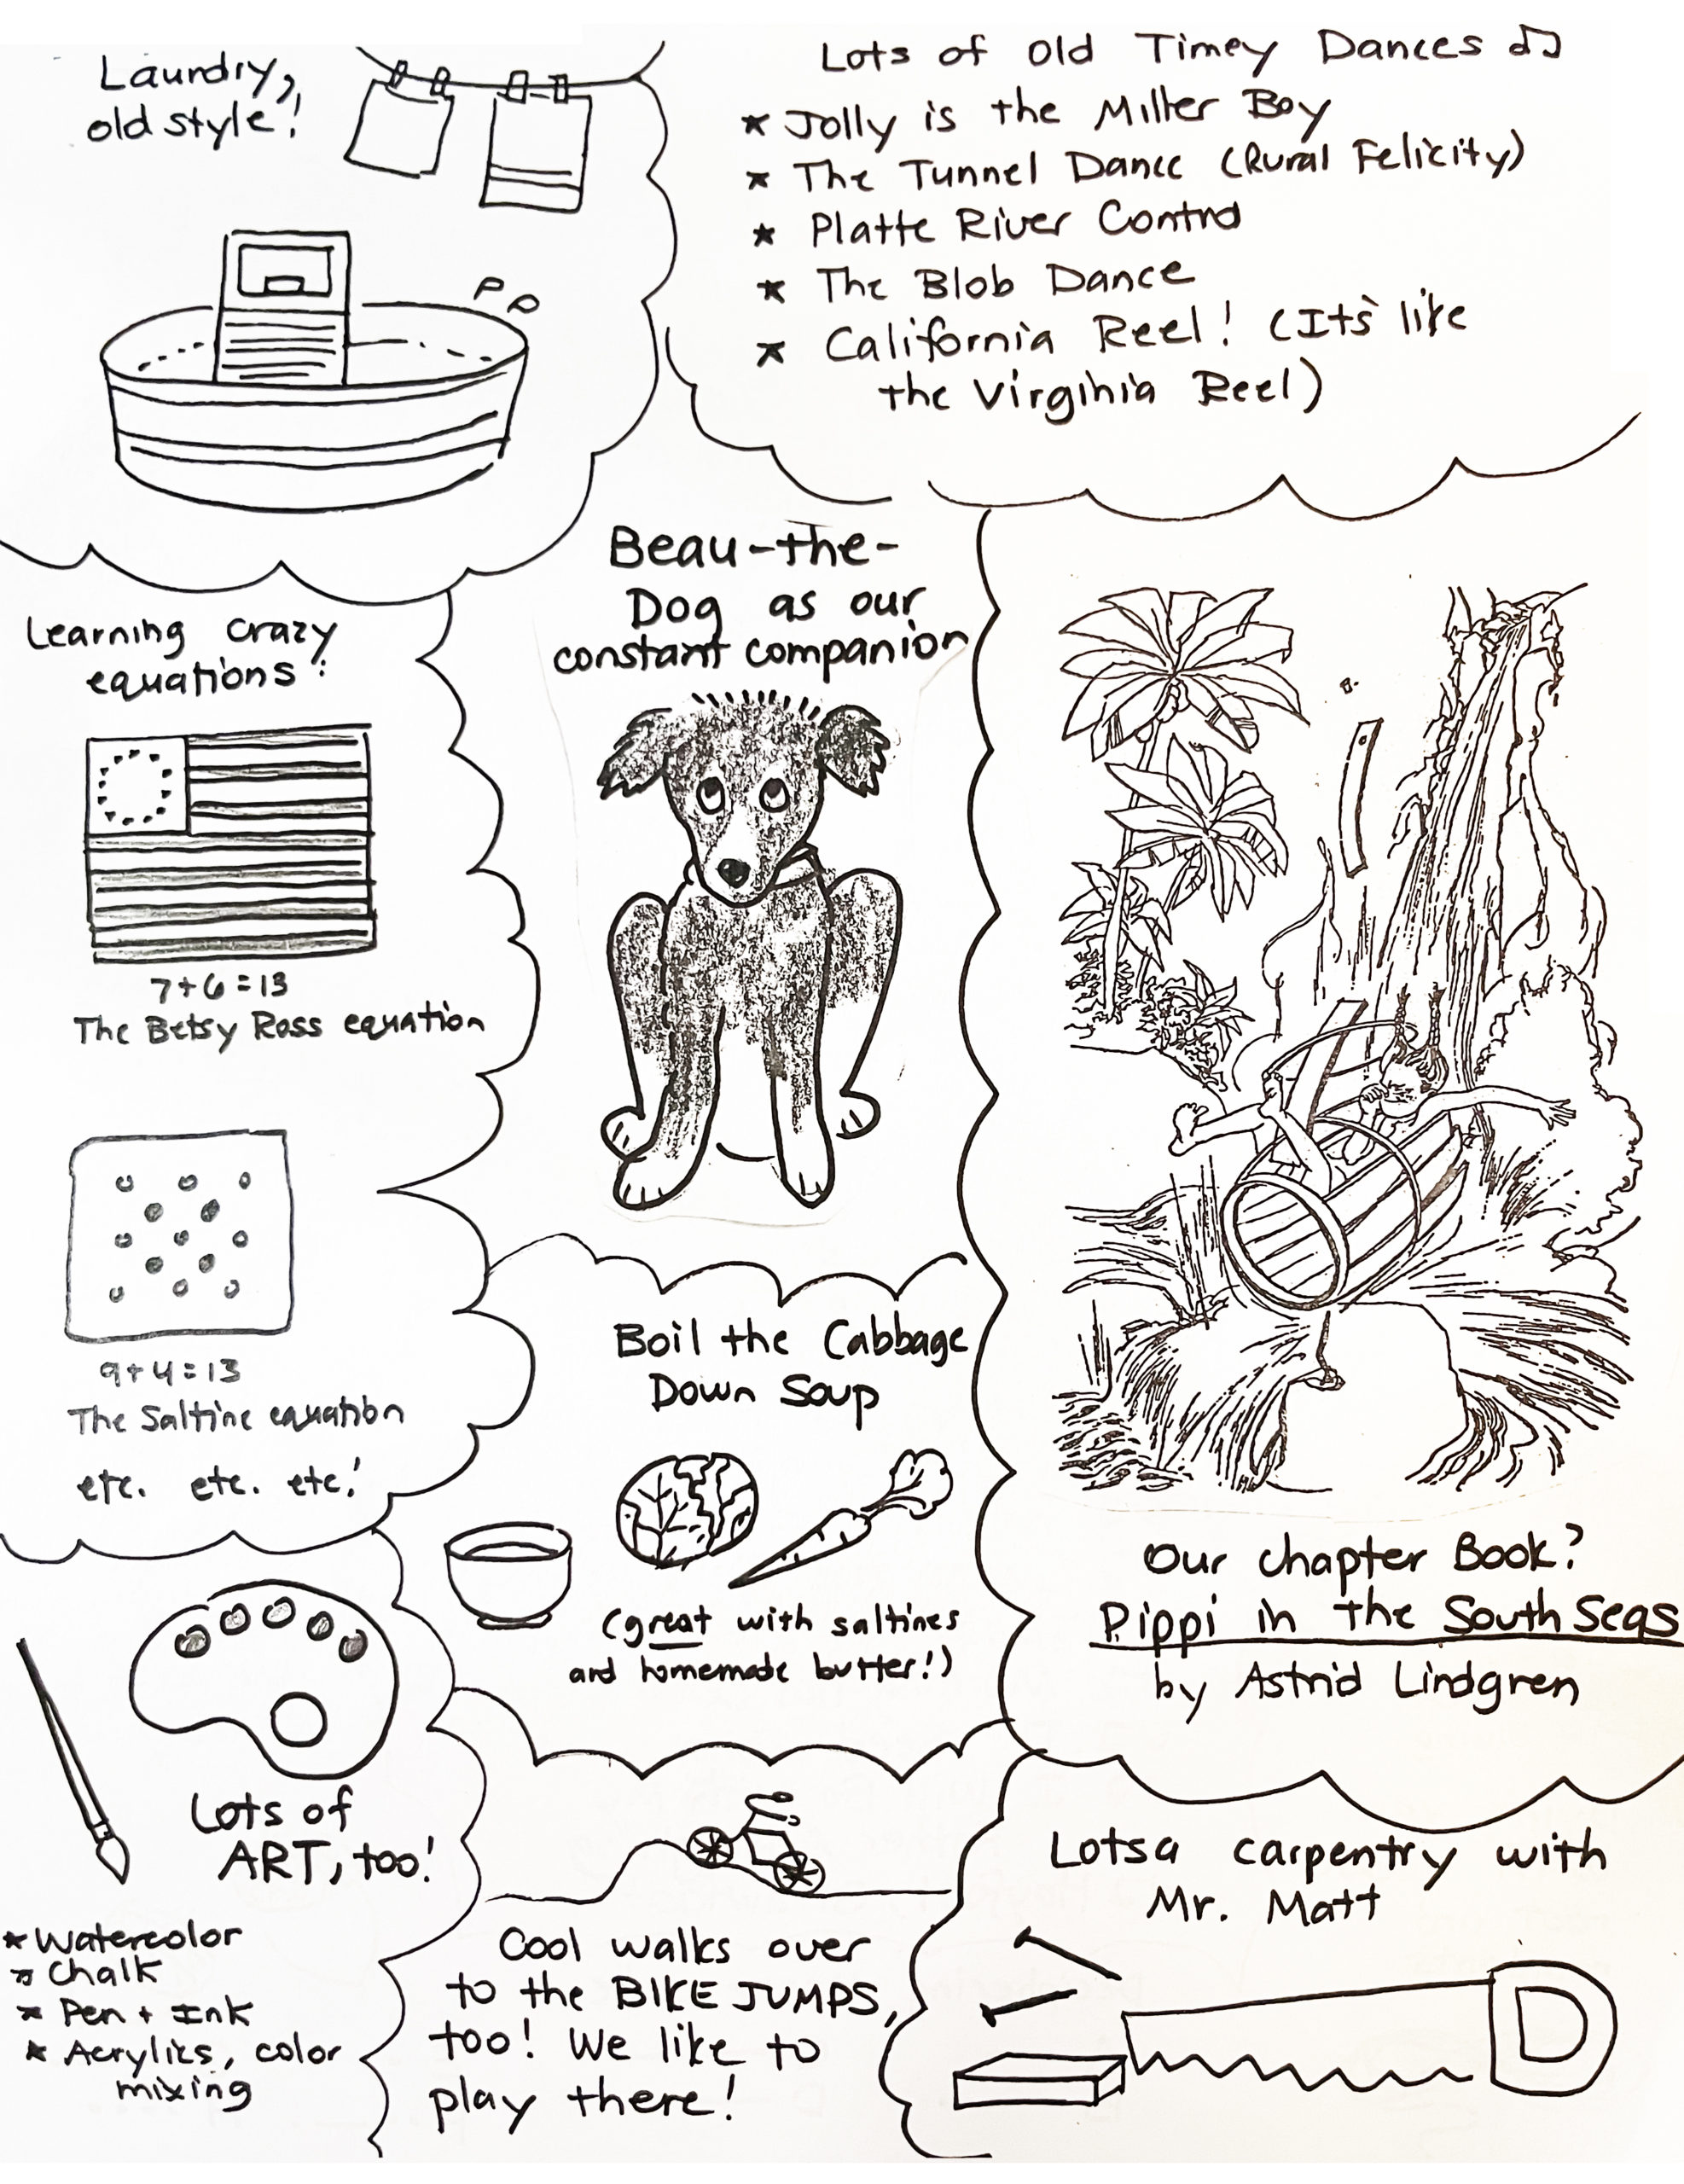 Laundry,
old style!
Lots of Old Timey Dances ♫
* Jolly is the Miller Boy
* The Tunnel Dance (Rural Felicity)
* Platte River Contra
* The Blob Dance
* California Reel! (Its like
the Virginia Reel)
Learning crazy
equations:
7+6=13
The Betsy Ross equation
9+4=13
The Saltine equation
etc. etc. etc!
Beau-the-
Dog as our
constant companion
Boil the Cabbage
Down Soup
(great with saltines
and homemade butter!)
Our Chapter Book?
Pippi in the South Seas
by Astrid Lindgren
Lots of
ART, too!
* Watercolor
* Chalk
* Pen + Ink
* Acrylics, color
mixing
Cool walks over
to the BIKE JUMPS,
too! We like to
play there!
Lotsa carpentry with
Mr. Matt